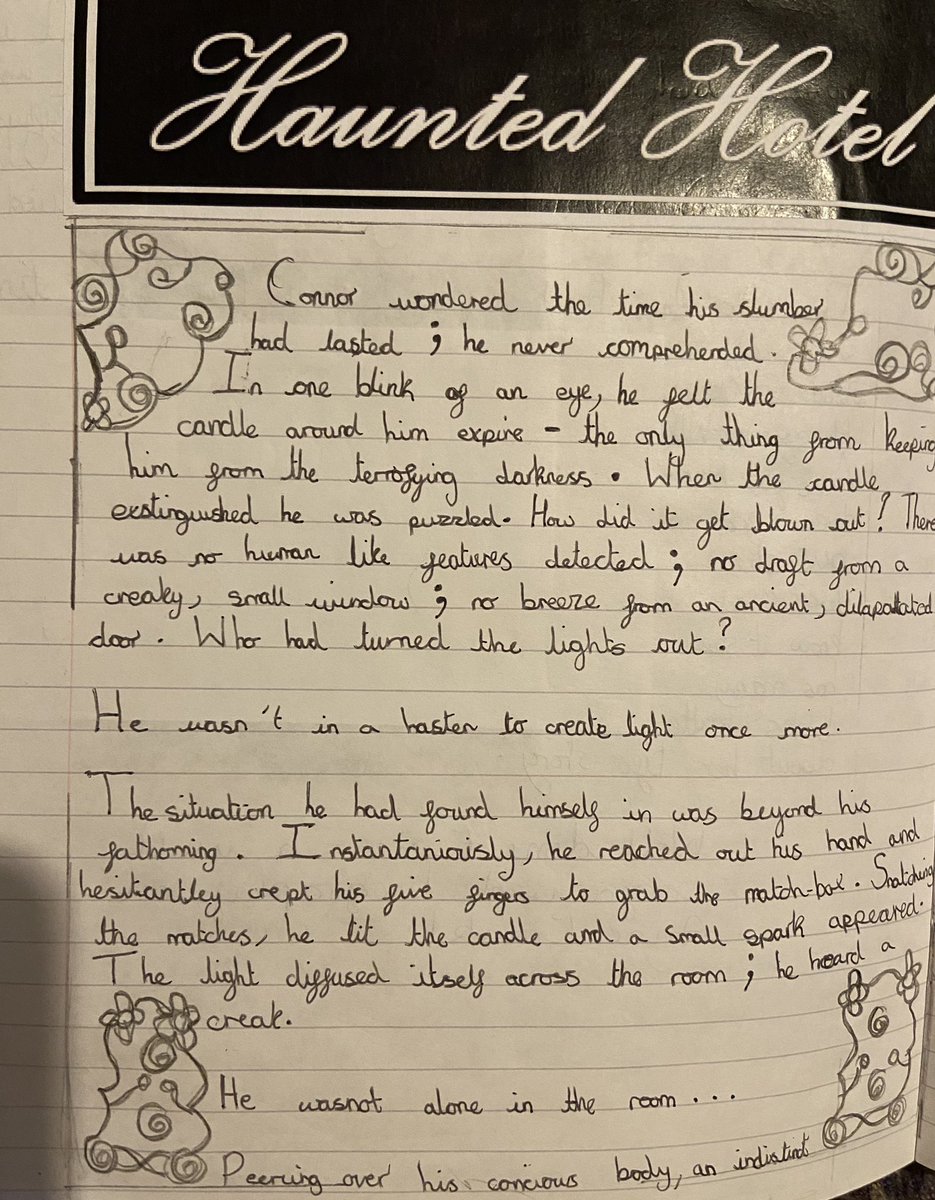 Haunted Hotel
Connor wondered the time his slumber
had lasted ; he never comprehended.
In one blink of an eye, he felt the
candle around him expire - the only thing from keeping
him from the terrofying darkness. When the candle
exstinguished he was puzzled. How did it get blown out? There
was no human like features detected ; no draft from a
creaky, small window ; no breeze from an ancient, dilapatated
door. Who had turned the lights out?
He wasn't in a hasten to create light once more.
The situation he had found himself in was beyond his
fathoming. Instantaniorisly, he reached out his hand and
hesitantley crept his five fingers to grab the match-box. Snatching
the matches, he lit the candle and a small spark appeared.
The light diffused itself across the room ; he heard a
creak.
He wasnot alone in the room...
Peering over his concious body, an indistinct